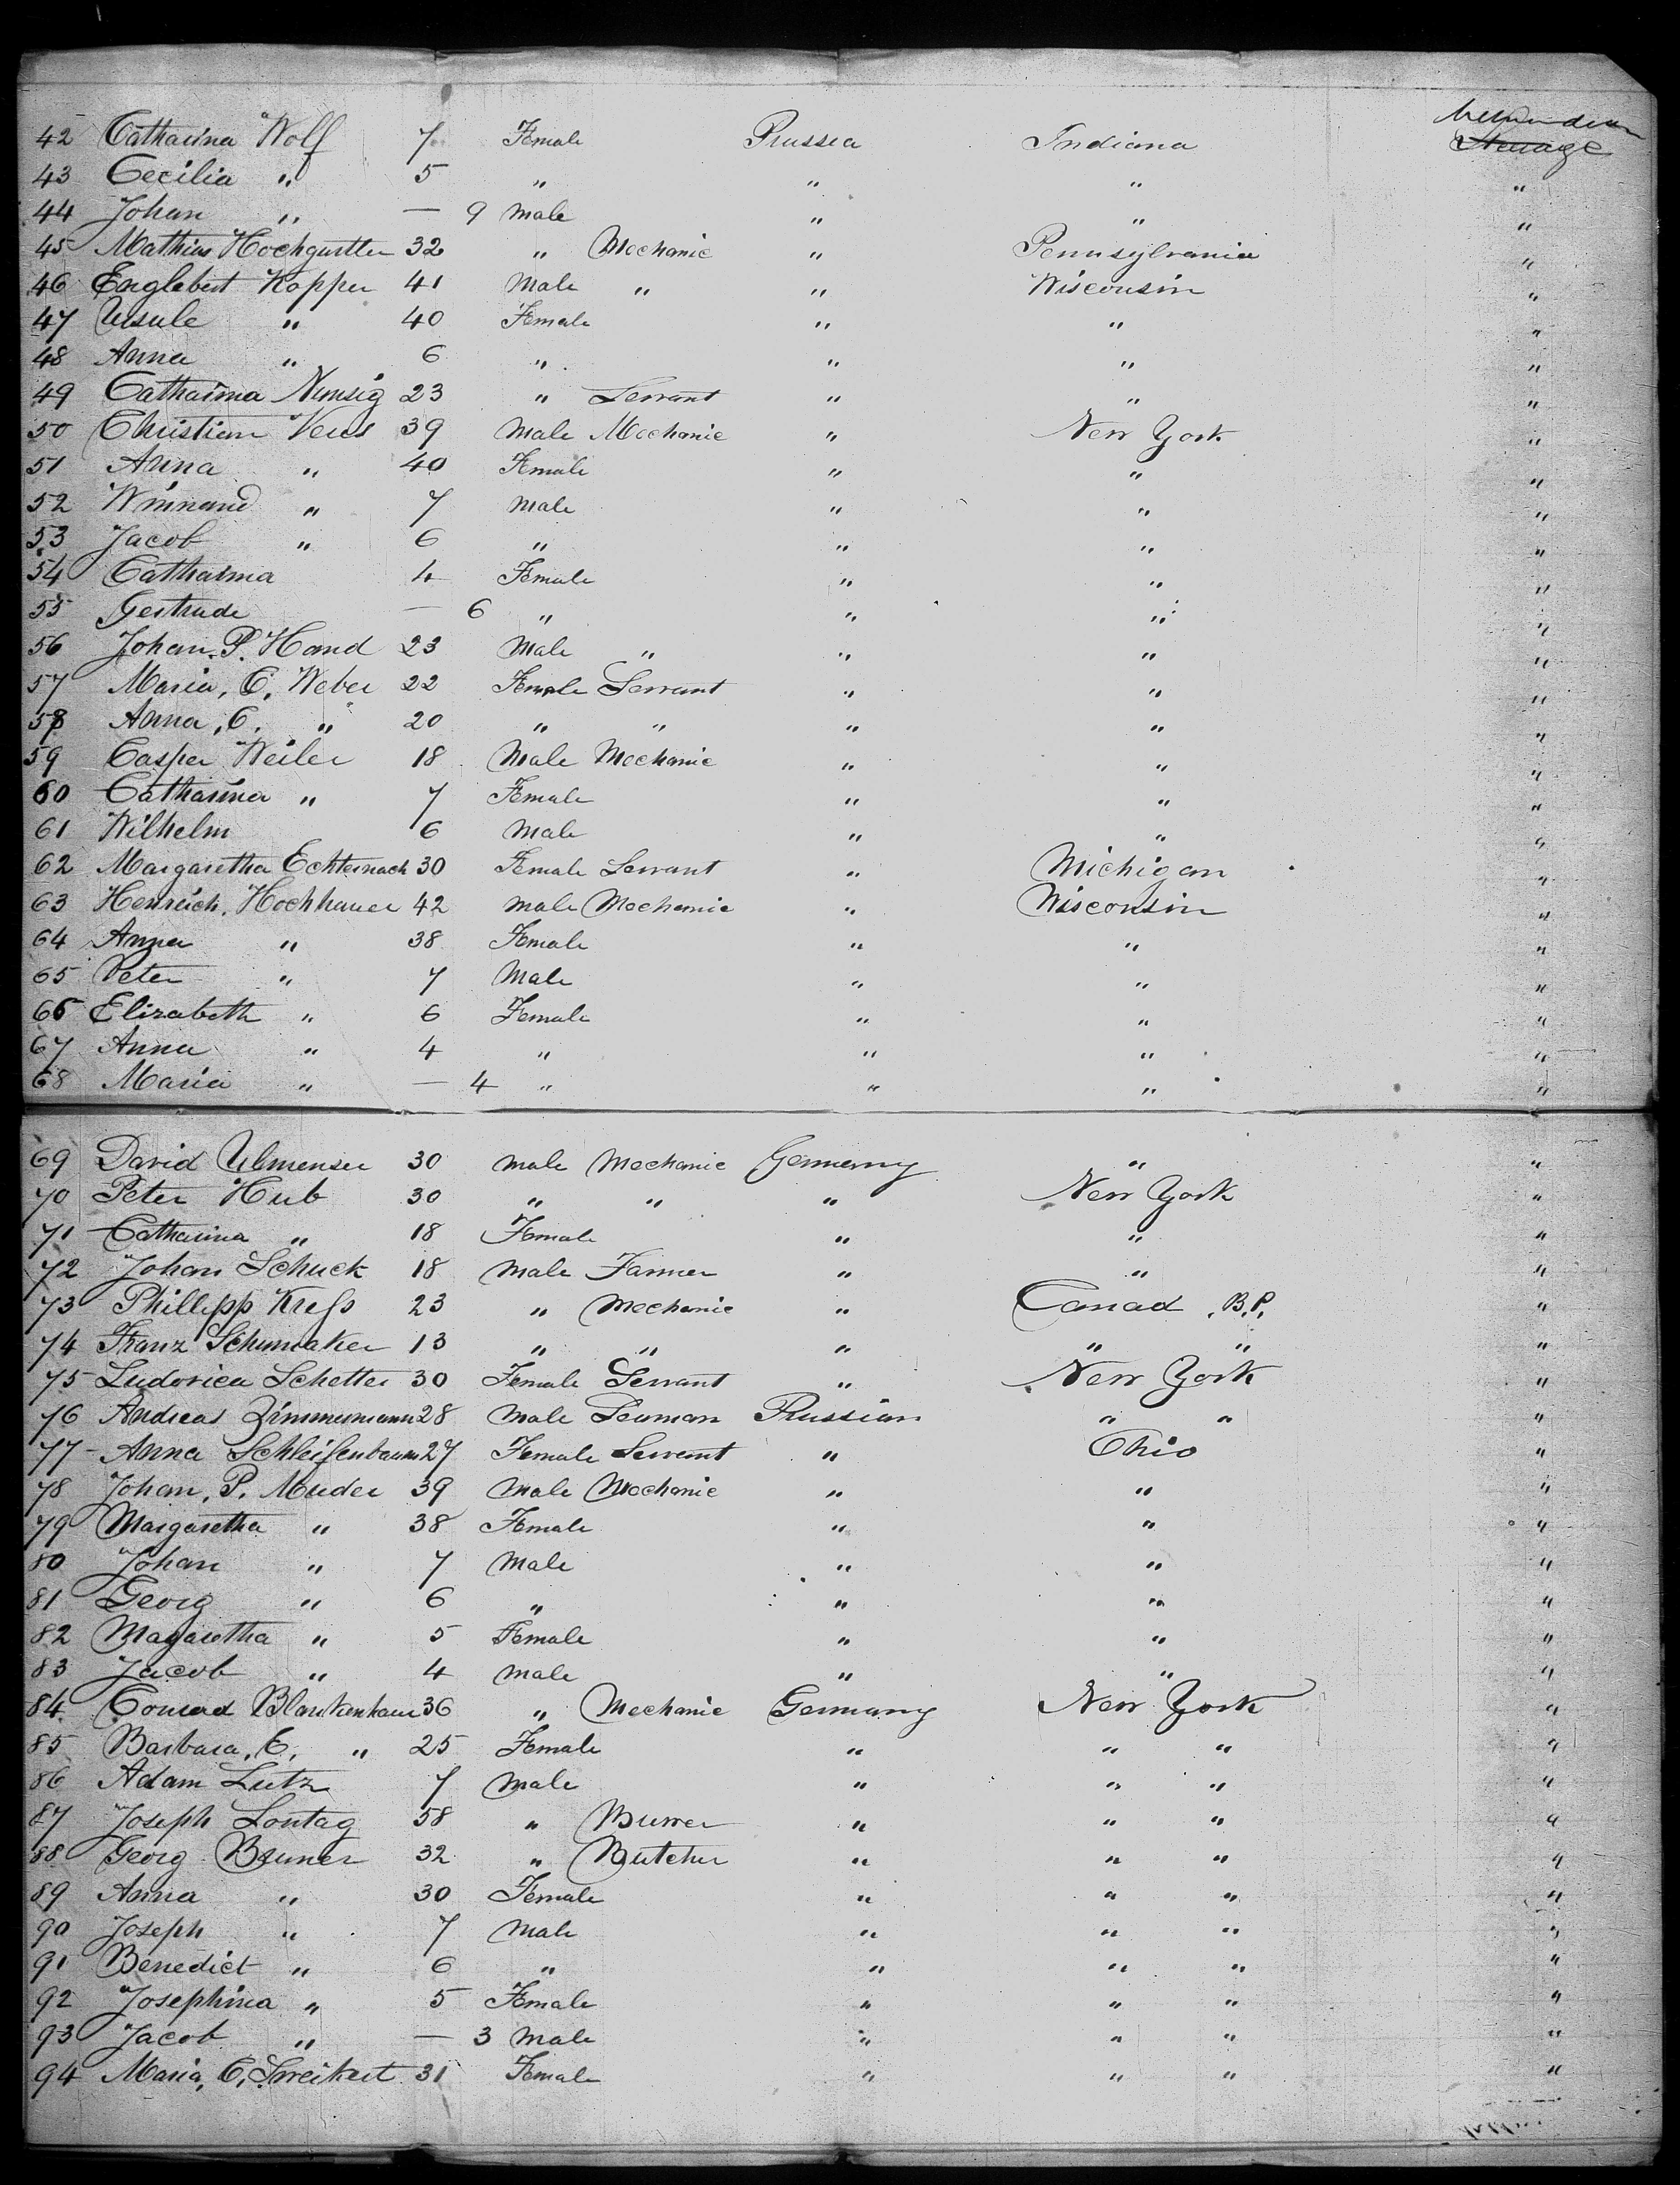 42 Catharina Wolf 7 Female Prussia Indiana Steerage
43 Cecilia " 5 " " " "
44 Johan " — 9 Male " " "
45 Mathias Hochgurtler 32 " Mechanic " Pennsylvania "
46 Englebert Kopper 41 Male " " Wisconsin "
47 Ursule " 40 Female " " "
48 Anna " 6 " " " "
49 Catharina Nunsig 23 " Servant " " "
50 Christian Veus 39 Male Mechanic " New York "
51 Anna " 40 Female " " "
52 Winnand " 7 Male " " "
53 Jacob " 6 " " " "
54 Catharina 4 Female " " "
55 Gertrude — 6 " " " "
56 Johan P. Hand 23 Male " " " "
57 Maria, C. Weber 22 Female Servant " " "
58 Anna, C. " 20 " " " " "
59 Casper Weiler 18 Male Mechanic " " "
60 Catharina " 7 Female " " "
61 Wilhelm 6 Male " " "
62 Margaretha Echternach 30 Female Servant " Michigan "
63 Henreich Hochhauer 42 Male Mechanic " Wisconsin "
64 Anna " 38 Female " " "
65 Peter " 7 Male " " "
66 Elizabeth " 6 Female " " "
67 Anna " 4 " " " "
68 Maria " — 4 " " " "
69 David Ulmenser 30 Male Mechanic Germany " "
70 Peter Hub 30 " " " New York "
71 Catharina " 18 Female " " "
72 Johan Schuck 18 Male Farmer " " "
73 Phillipp Kress 23 " Mechanic " Canad . B.P. "
74 Franz Schumaker 13 " " " " " "
75 Ludovica Schetter 30 Female Servant " New York "
76 Andreas Zimmermann 28 Male Seaman Prussian " " "
77 Anna Schleifenbaum 27 Female Servant " Ohio "
78 Johan, P. Muder 39 Male Mechanic " " "
79 Margaretha " 38 Female " " "
80 Johan " 7 Male " " "
81 Georg " 6 " " " "
82 Magaretha " 5 Female " " "
83 Jacob " 4 Male " " "
84 Conrad Blankenhauer 36 " Mechanic Germany New York "
85 Barbara, C. " 25 Female " " " "
86 Adam Lutz 7 Male " " " "
87 Joseph Sontag 58 " Burrer " " " "
88 Georg Bruner 32 " Butcher " " " "
89 Anna " 30 Female " " " "
90 Joseph " 7 Male " " " "
91 Benedict " 6 " " " " "
92 Josephina " 5 Female " " " "
93 Jacob " — 3 Male " " " "
94 Maria, C. Sreikert 31 Female " " " "